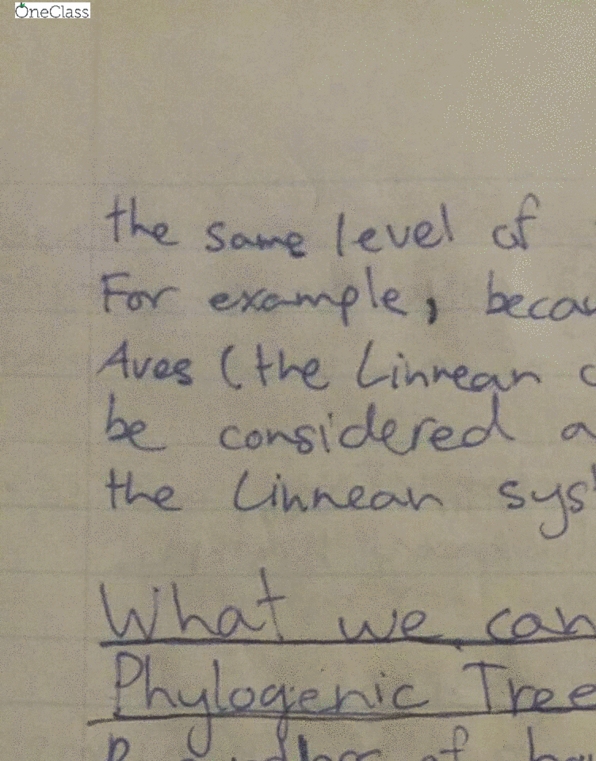 OneClass
the same level of
For example, becau
Aves (the Linnean c
be considered a
the Linnean sys
What we can
Phylogenic Tree
of